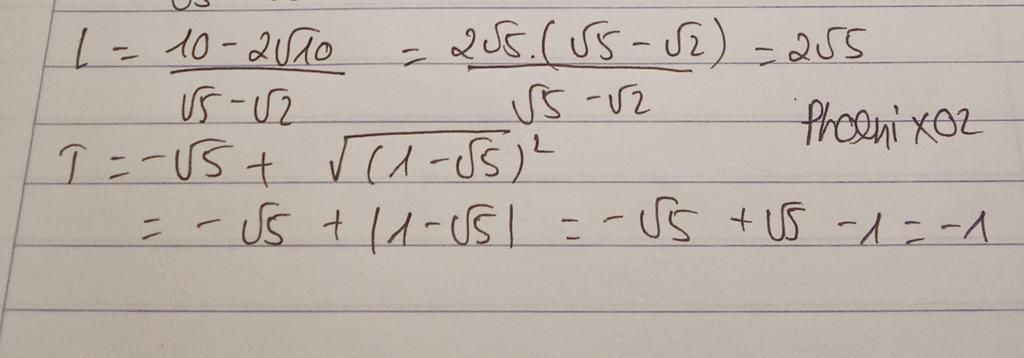 L = (10 - 2√10)/(√5 - √2) = (2√5.(√5 - √2))/(√5 - √2) = 2√5
PhoeniX02
T = -√5 + √((1 - √5)²)
= - √5 + |1 - √5| = - √5 + √5 - 1 = -1